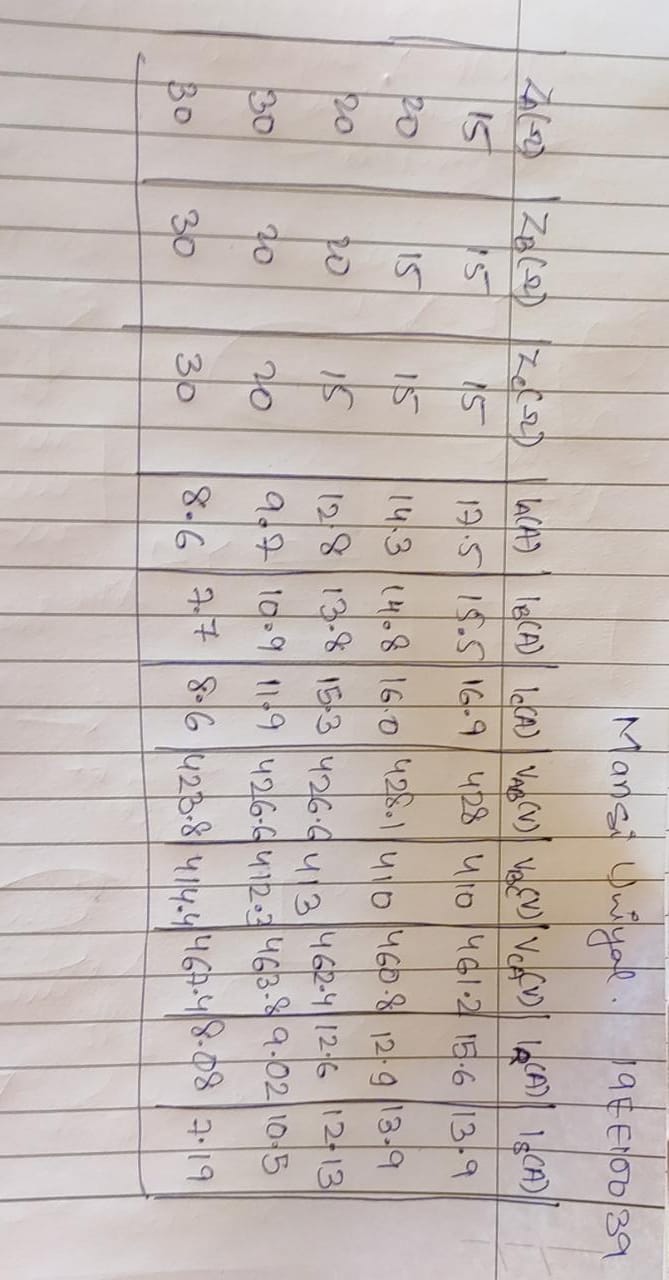 Mansi Uniyal. 19EE10039
ZA(Ω) | ZB(Ω) | Zc(Ω) | IA(A) | IB(A) | Ic(A) | VAB(V) | VBC(V) | VCA(V) | Ia(A) | IB(A)
15 15 15 17.5 15.5 16.9 428 410 461.2 15.6 13.9
20 15 15 14.3 14.8 16.0 428.1 410 460.8 12.9 13.9
20 20 15 12.8 13.8 15.3 426.6 413 462.4 12.6 12.13
30 20 20 9.7 10.9 11.9 426.6 412.3 463.8 9.02 10.5
30 30 30 8.6 7.7 8.6 423.8 414.4 467.4 8.08 7.19